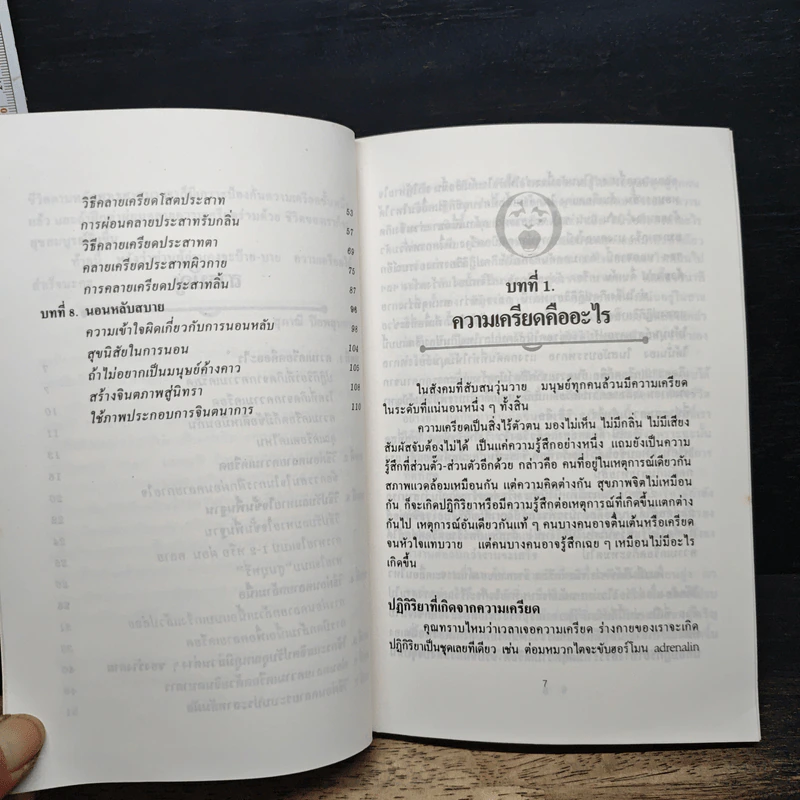 วิธีคลายเครียดโสตประสาท 53
การผ่อนคลายประสาทรับกลิ่น 57
วิธีคลายเครียดประสาทตา 69
คลายเครียดประสาทผิวกาย 75
การคลายเครียดประสาทลิ้น 87
บทที่ 8. นอนหลับสบาย 96
ความเข้าใจผิดเกี่ยวกับการนอนหลับ 98
สุขนิสัยในการนอน 104
ถ้าไม่อยากเป็นมนุษย์ค้างคาว 105
สร้างจินตภาพสู่นิทรา 108
ใช้ภาพประกอบการจินตนาการ 110
บทที่ 1.
ความเครียดคืออะไร
ในสังคมที่สับสนวุ่นวาย มนุษย์ทุกคนล้วนมีความเครียด
ในระดับที่แน่นอนหนึ่ง ๆ ทั้งสิ้น
ความเครียดเป็นสิ่งไร้ตัวตน มองไม่เห็น ไม่มีกลิ่น ไม่มีเสียง
สัมผัสจับต้องไม่ได้ เป็นแค่ความรู้สึกอย่างหนึ่ง แถมยังเป็นความ
รู้สึกที่ส่วนตั๊ว-ส่วนตัวอีกด้วย กล่าวคือ คนที่อยู่ในเหตุการณ์เดียวกัน
สภาพแวดล้อมเหมือนกัน แต่ความคิดต่างกัน สุขภาพจิตไม่เหมือน
กัน ก็จะเกิดปฏิกิริยาหรือมีความรู้สึกต่อเหตุการณ์ที่เกิดขึ้นแตกต่าง
กันไป เหตุการณ์อันเดียวกันแท้ ๆ คนบางคนอาจตื่นเต้นหรือเครียด
จนหัวใจแทบวาย แต่คนบางคนอาจรู้สึกเฉย ๆ เหมือนไม่มีอะไร
เกิดขึ้น
ปฏิกิริยาที่เกิดจากความเครียด
คุณทราบไหมว่าเวลาเจอความเครียด ร่างกายของเราจะเกิด
ปฏิกิริยาเป็นชุดเลยทีเดียว เช่น ต่อมหมวกไตจะขับฮอร์โมน adrenalin
7